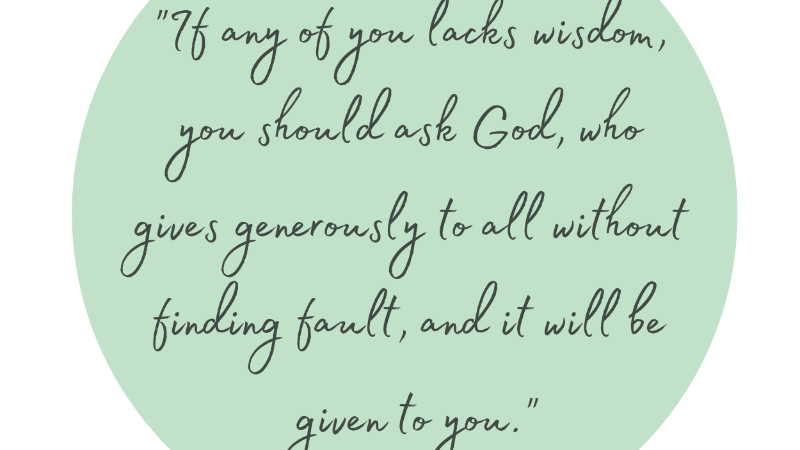 "If any of you lacks wisdom,
you should ask God, who
gives generously to all without
finding fault, and it will be
given to you."